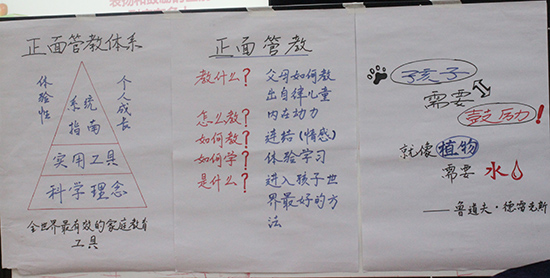 正面管教体系
体验性
系统
指南
个人成长
实用工具
科学理念
全世界最有效的家庭教育
工具
正面管教
教什么? 父母如何教
出自律儿童
怎么教? 内在动力
如何教? (情感)
如何学? 体验学习
是什么? 进入孩子世
界最好的方
法
孩子
需要
鼓励!
就像植物
需要 水
——鲁道夫·德雷克斯